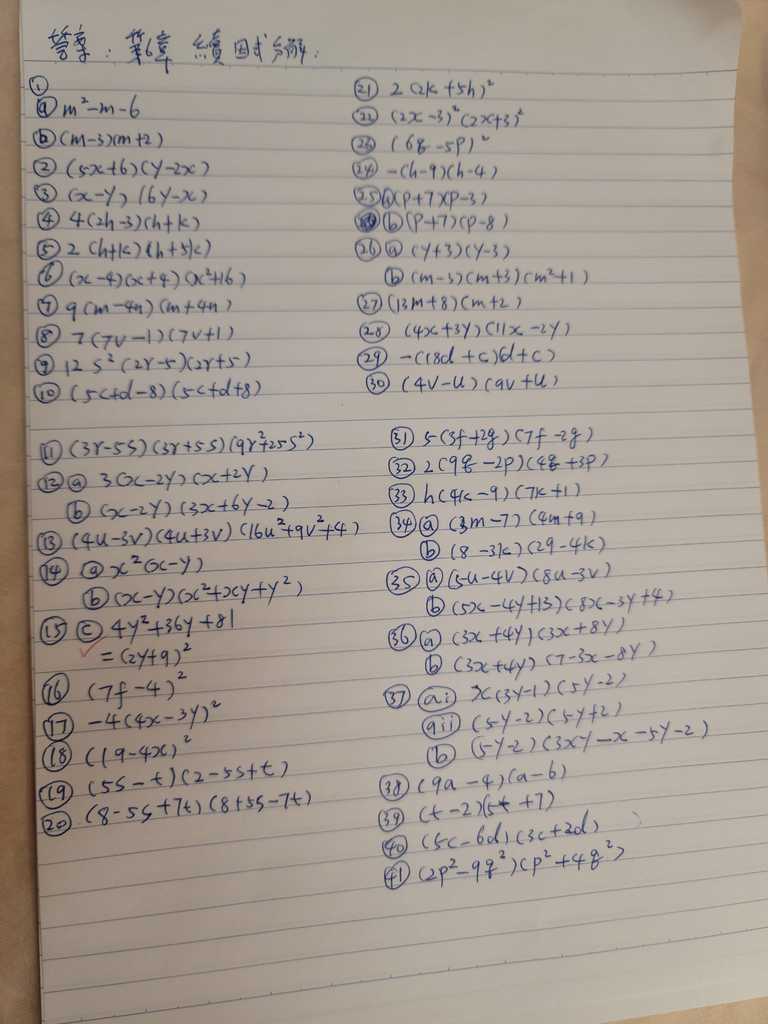 答案：第6章 續因式分解：
①
ⓐ m²-m-6
ⓑ (m-3)(m+2)
② (5x+6)(y-2x)
③ (x-y)(6y-x)
④ 4(2h-3)(h+k)
⑤ 2(h+k)(h+5k)
⑥ (x-4)(x+4)(x²+16)
⑦ 9(m-4n)(m+4n)
⑧ 7(7v-1)(7v+1)
⑨ 12s²(2r-5)(2r+5)
⑩ (5c+d-8)(5c+d+8)
⑪ (3r-5s)(3r+5s)(9r²+25s²)
⑫ ⓐ 3(x-2y)(x+2y)
ⓑ (x-2y)(3x+6y-2)
⑬ (4u-3v)(4u+3v)(16u²+9v²+4)
⑭ ⓐ x²(x-y)
ⓑ (x-y)(x²+xy+y²)
⑮ ⓒ 4y²+36y+81
=(2y+9)²
⑯ (7f-4)²
⑰ -4(4x-3y)²
⑱ (19-4x)²
⑲ (5s-t)(2-5s+t)
⑳ (8-5s+7t)(8+5s-7t)
㉑ 2(2k+5h)²
㉒ (2x-3)²(2x+3)²
㉓ (6q-5p)²
㉔ -(h-9)(h-4)
㉕ ⓐ (p+7)(p-3)
ⓑ (p+7)(p-8)
㉖ ⓐ (y+3)(y-3)
ⓑ (m-3)(m+3)(m²+1)
㉗ (13m+8)(m+2)
㉘ (4x+3y)(11x-2y)
㉙ -(18d+c)(d+c)
㉚ (4v-u)(9v+u)
㉛ 5(3f+2g)(7f-2g)
㉜ 2(9q-2p)(4q+3p)
㉝ h(4k-9)(7k+1)
㉞ ⓐ (3m-7)(4m+9)
ⓑ (8-3k)(29-4k)
㉟ ⓐ (5u-4v)(8u-3v)
ⓑ (5x-4y+13)(8x-3y+4)
㊱ ⓐ (3x+4y)(3x+8y)
ⓑ (3x+4y)(7-3x-8y)
㊲ ai x(3y-1)(5y-2)
aii (5y-2)(5y+2)
ⓑ (5y-2)(3xy-x-5y-2)
㊳ (9a-4)(a-6)
㊴ (t-2)(5t+7)
㊵ (5c-6d)(3c+2d)
㊶ (2p²-9q²)(p²+4q²)